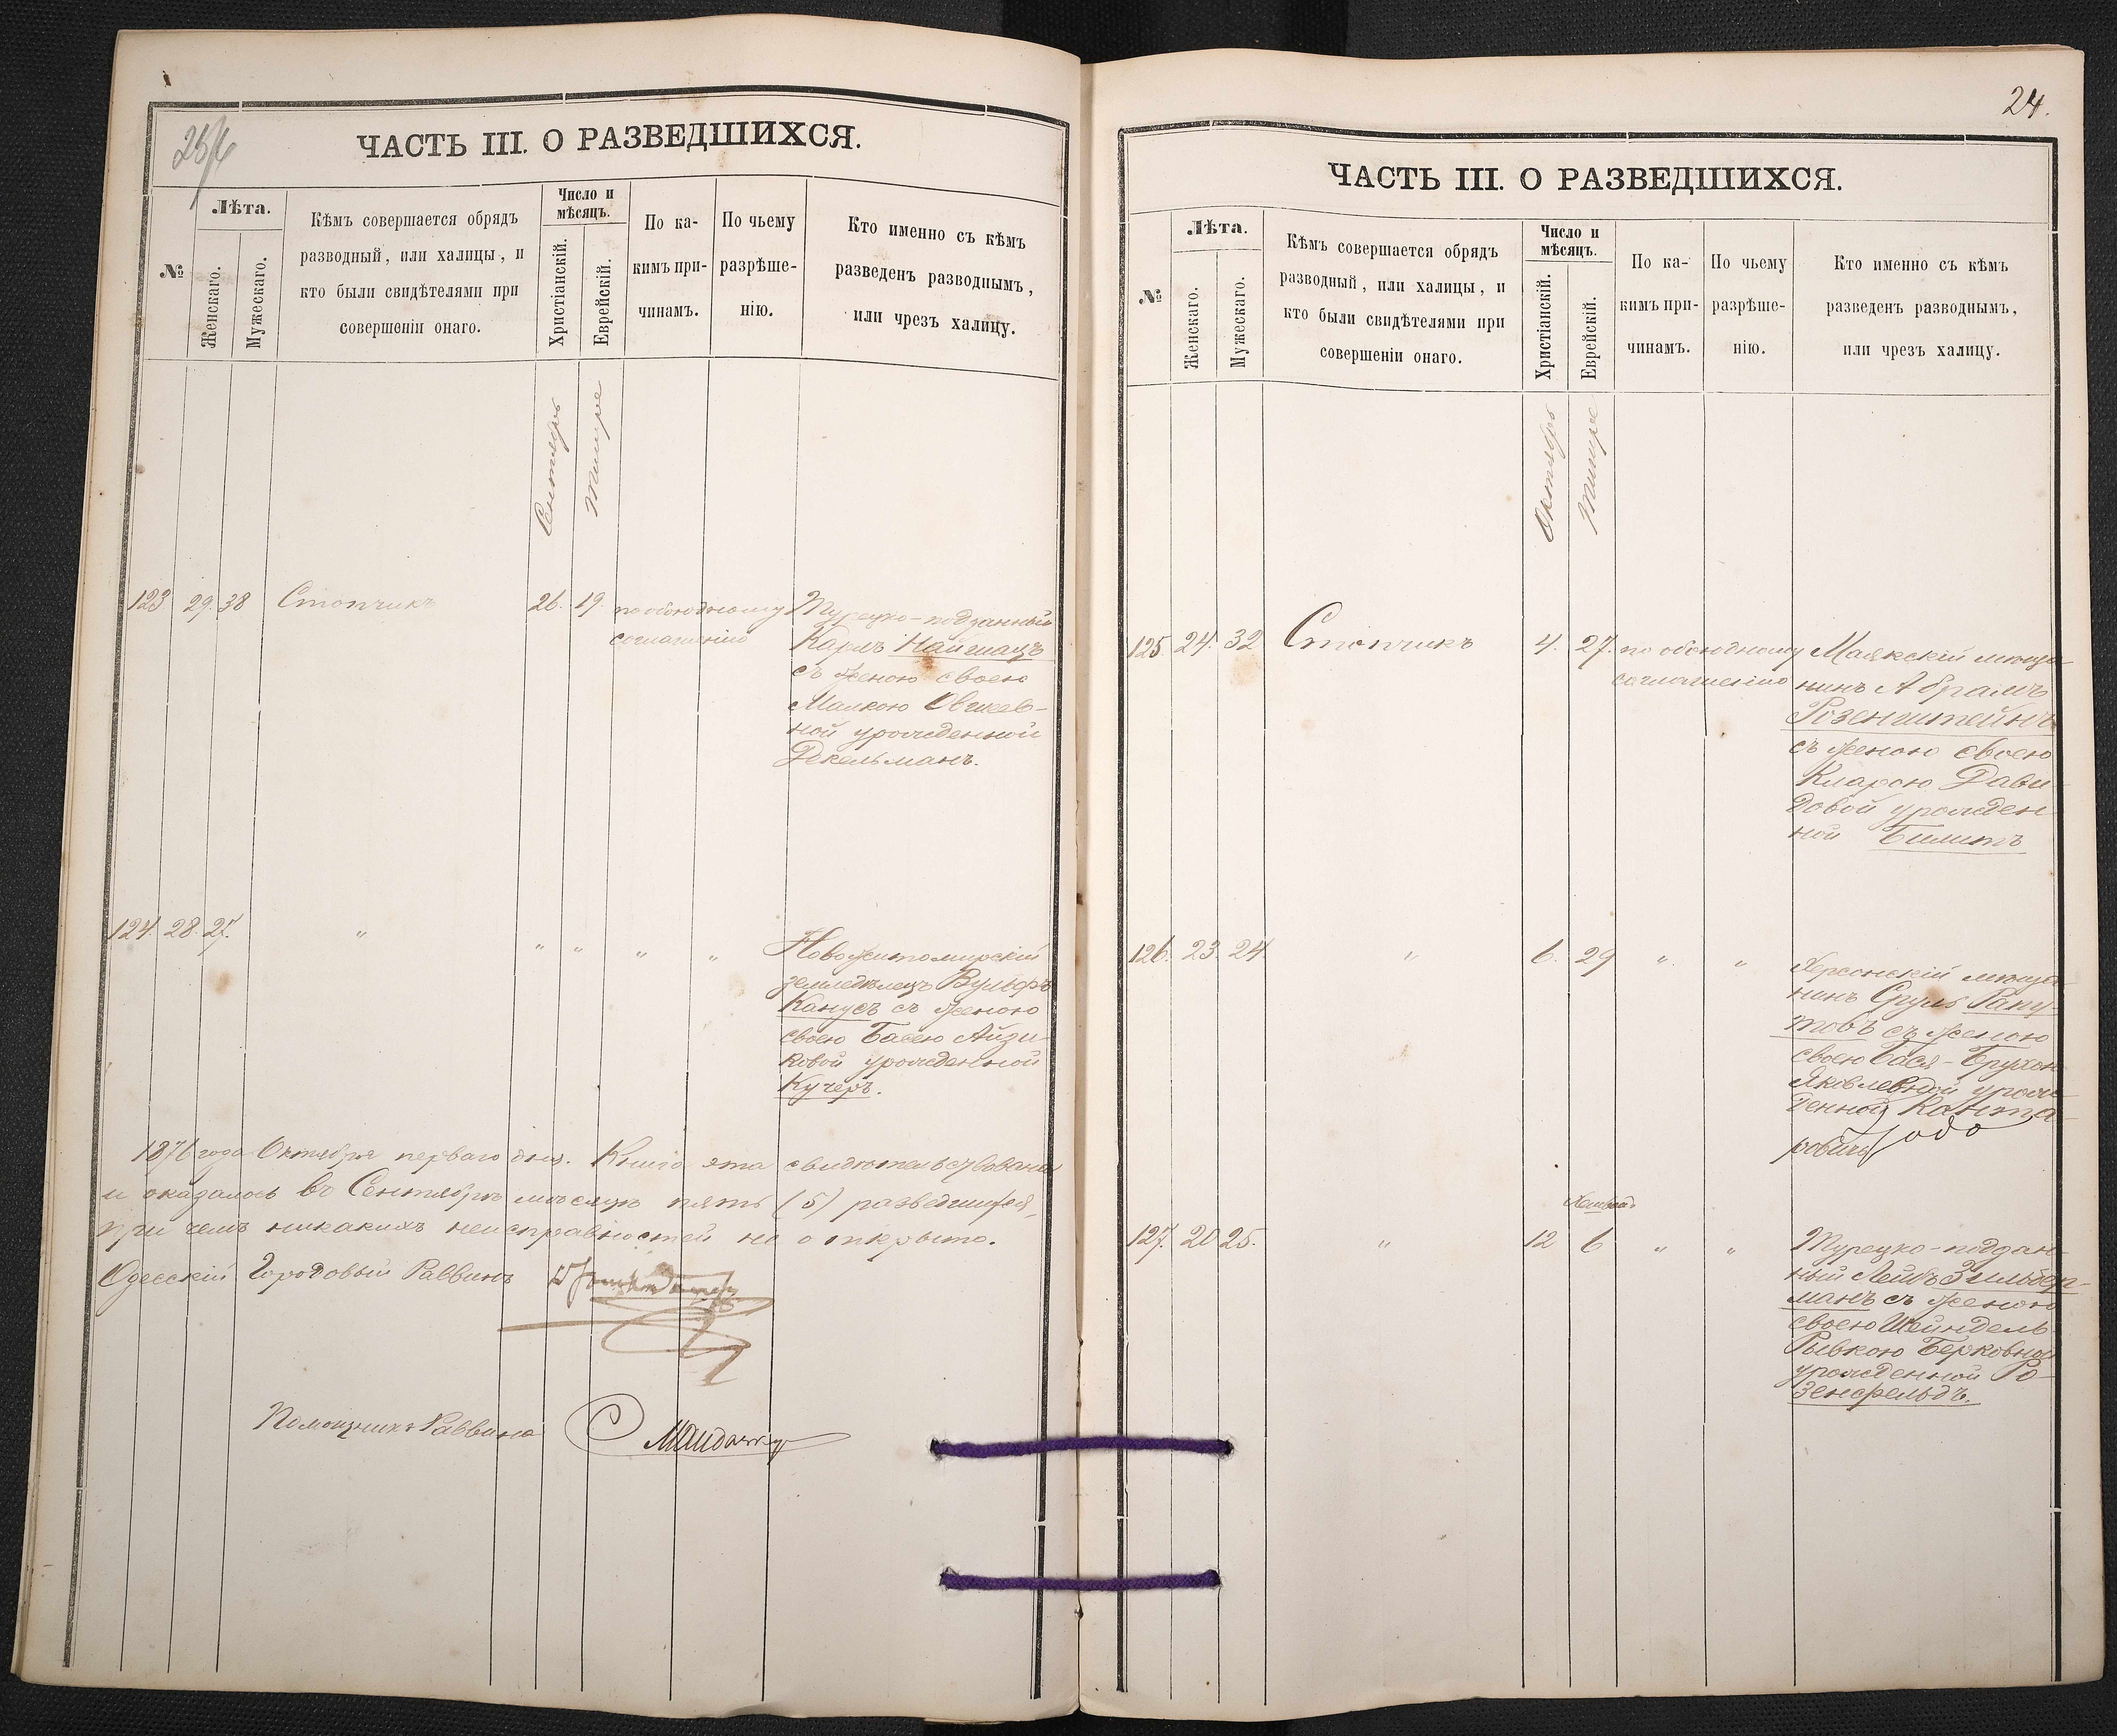 ЧАСТЬ III. О РАЗВЕДШИХСЯ.
№
Лѣта.
Женскаго.
Мужескаго.
Кѣмъ совершается обрядъ
разводный, или халицы, и
кто были свидѣтелями при
совершеніи онаго.
Число и
мѣсяцъ.
Христіанскій.
Еврейскій.
По ка-
кимъ при-
чинамъ.
По чьему
разрѣше-
нію.
Кто именно съ кѣмъ
разведенъ разводнымъ,
или чрезъ халицу.
Сентябрь
Тишре
123 29. 38 Стопчикъ 26. 19 по обоюдному
соглашенію
Турецко-подданный
Карлъ Наймацъ
съ женою своею
Малкою Овшіев-
ной урожденной
Декельманъ.
124. 28. 27. " " " " "
Новожитомирскій
земледѣлецъ Вульфъ
Канусъ съ женою
своею Басею Айзи-
ковой урожденной
Кучеръ.
1876 года Октября перваго дня. Книга эта свидѣтельствована
и оказалось въ Сентябрѣ мѣсяцѣ пять (5) разведшихся,
при чемъ никакихъ неисправностей не открыто.
Одесскій Городовый Раввинъ
Помощникъ Раввина
24.
ЧАСТЬ III. О РАЗВЕДШИХСЯ.
№
Лѣта.
Женскаго.
Мужескаго.
Кѣмъ совершается обрядъ
разводный, или халицы, и
кто были свидѣтелями при
совершеніи онаго.
Число и
мѣсяцъ.
Христіанскій.
Еврейскій.
По ка-
кимъ при-
чинамъ.
По чьему
разрѣше-
нію.
Кто именно съ кѣмъ
разведенъ разводнымъ,
или чрезъ халицу.
Октябрь
Тишре
125. 24. 32 Стопчикъ 4. 27. по обоюдному
соглашенію
Маякскій мѣща-
нинъ Абрамъ
Розенштейнъ
съ женою своею
Кларою Дави-
довой урожден-
ной Билитъ
126. 23. 24. " 6. 29 " "
Херсонскій мѣща-
нинъ Сруль Рапу-
товъ съ женою
своею Бася-Брухою
Яковлевной урож-
денной Канто-
ровичъ
Хешванъ
127. 20 25. " 12 6 " "
Турецко-поддан-
ный Лейбъ Зильбер-
манъ съ женою
своею Шейндель
Рывкою Берковной
урожденной Ро-
зенфельдъ.